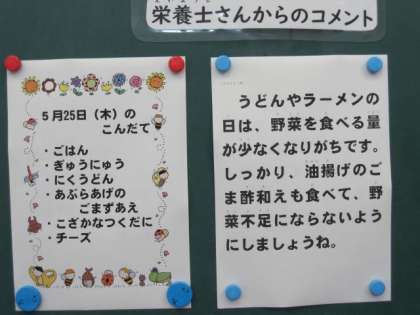 栄養士さんからのコメント
5月25日（木）の
こんだて
・ごはん
・ぎゅうにゅう
・にくうどん
・あぶらあげの
ごまずあえ
・こざかなつくだに
・チーズ
うどんやラーメンの
日は、野菜を食べる量
が少なくなりがちです。
しっかり、油揚げのご
ま酢和えも食べて、野
菜不足にならないよう
にしましょうね。